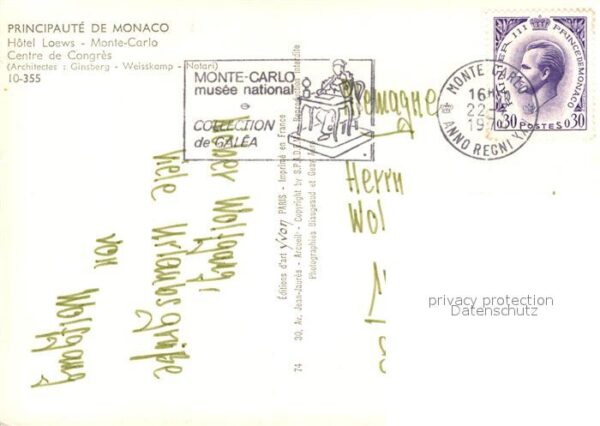 PRINCIPAUTÉ DE MONACO
Hôtel Loews - Monte-Carlo
Centre de Congrès
(Architectes : Ginsberg - Weisskamp - Notari)
10-355
MONTE-CARLO
musée national
COLLECTION
de GALÉA
MONTE CARLO
16H
22
197
ANNO REGNI
RAINIER III PRINCE DE MONACO
0,30 POSTES 0,30
Lieber Wolfgang!
Viele Urlaubsgrüße
von
Wolfgang
Éditions d'art Yvon PARIS - Imprimé en France
30, Av. Jean-Jaurès - Arcueil - Copyright by S.P.A.D.E.M.
Photographies Biaugeaud et
Reproduction interdite
74
Allemagne
Herrn
Wol
privacy protection
Datenschutz